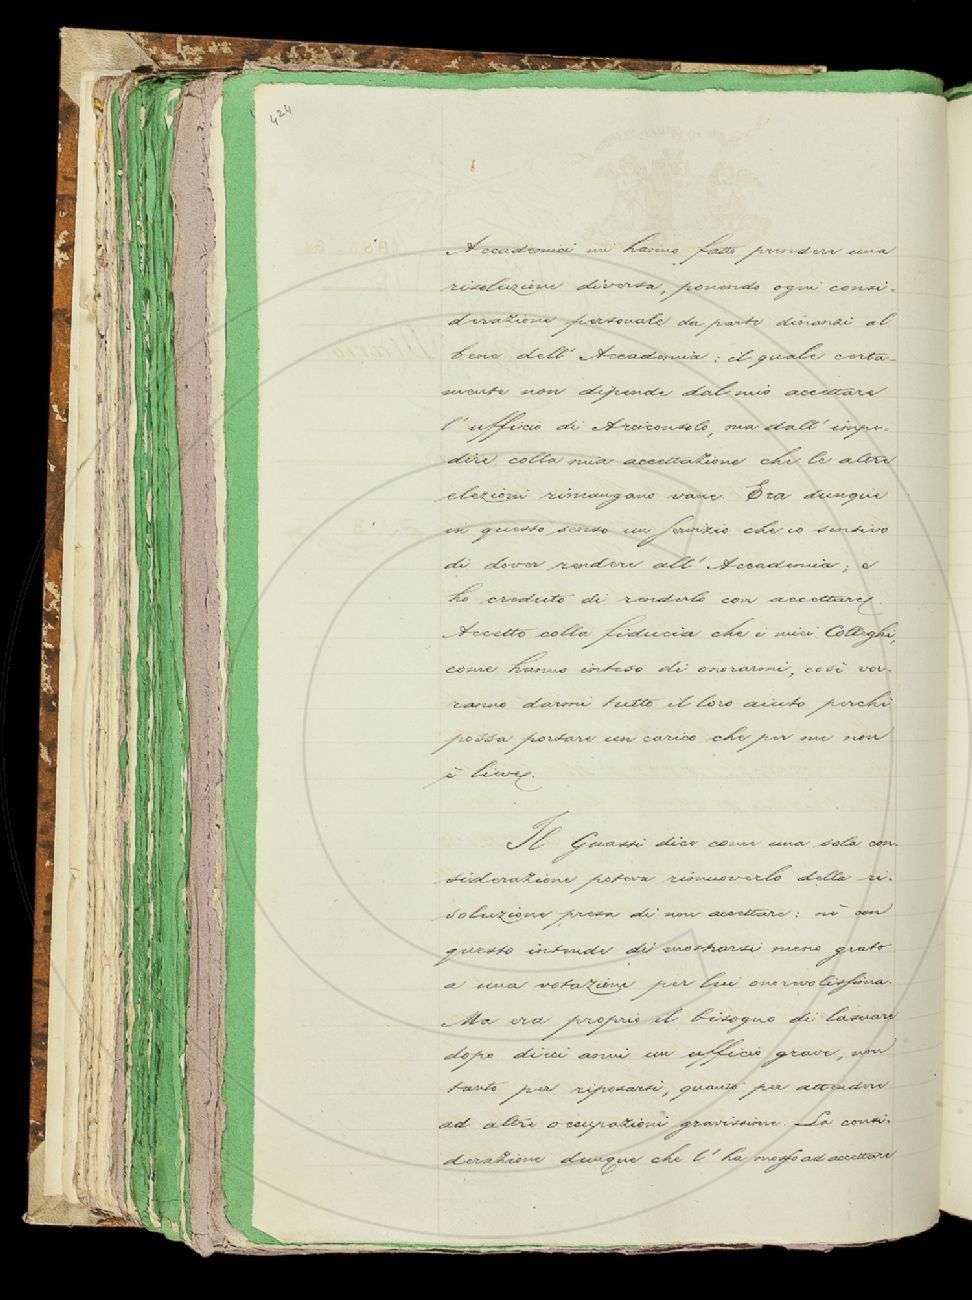 424
Accademici mi hanno fatto prendere una
risoluzione diversa, ponendo ogni consi-
derazione personale da parte dinanzi al
bene dell' Accademia: il quale certa-
mente non dipende dal mio accettare
l' ufficio di Arciconsolo, ma dall' impe-
dire colla mia accettazione che le altre
elezioni rimangano vane. Era dunque
in questo senso un servizio che io sentivo
di dover rendere all' Accademia; e
ho creduto di renderlo con accettare.
Accetto colla fiducia che i miei Colleghi,
come hanno inteso di onorarmi, così vor-
ranno darmi tutto il loro aiuto perchè
possa portare un carico che per me non
è lieve.
Il Guasti dice come una sola con-
siderazione poteva rimuoverlo dalla ri-
soluzione presa di non accettare: nè con
questo intende di mostrarsi meno grato
a una votazione per lui onorevolissima.
Ma era proprio il bisogno di lasciare
dopo dieci anni un ufficio grave, non
tanto per riposarsi, quanto per attendere
ad altre occupazioni gravissime. La consi-
derazione dunque che l' ha mosso ad accettare